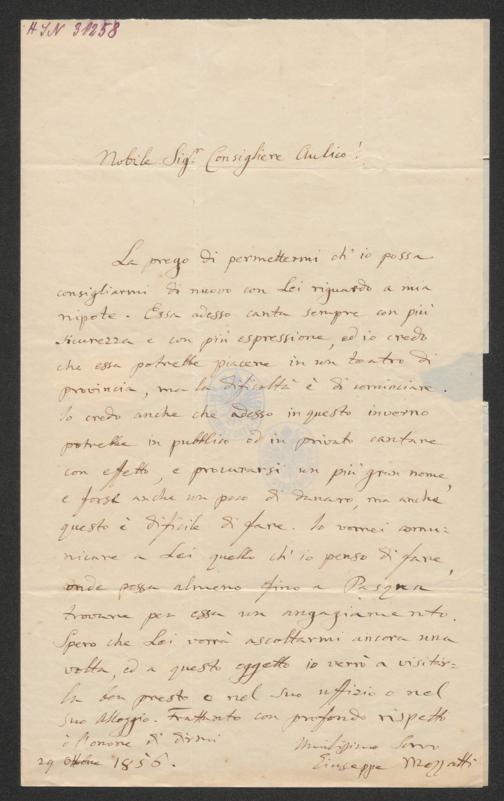 HIN 31258
Nobile Sigr Consigliere Aulico!
La prego di permettermi ch' io possa
consigliarmi di nuovo con Lei riguardo a mia
nipote. Essa adesso canta sempre con più
sicurezza e con più espressione, ed io credo
che essa potrebbe piacere in un teatro di
provincia, ma la dificoltà è di cominciare.
Io credo anche che adesso in questo inverno
potrebbe in pubblico od in privato cantare
con effetto, e procurarsi un più gran nome,
e forse anche un poco di danaro, ma anche
questo è dificile di fare. Io vorrei comu-
nicare a Lei quello ch' io penso di fare,
onde possa almeno fino a Pasqua
trovare per essa un angagiamento.
Spero che Lei vorrà ascoltarmi ancora una
volta, ed a questo oggetto io verrò a visitar-
la ben presto o nel suo uffizio o nel
suo alloggio. Frattanto con profondo rispetto
ò l'onore di dirmi
Umilissimo Servo
29 1856. Giuseppe Mozzatti